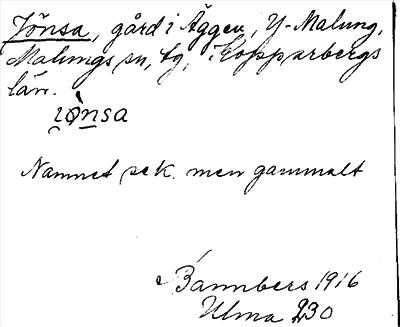 Jönsa, gård i Äggen, Y-Malung,
Malungs sn, tg, Kopparbergs
län.
ìònsa
Namnet sek. men gammalt
Bannbers 1916
Ulma 230